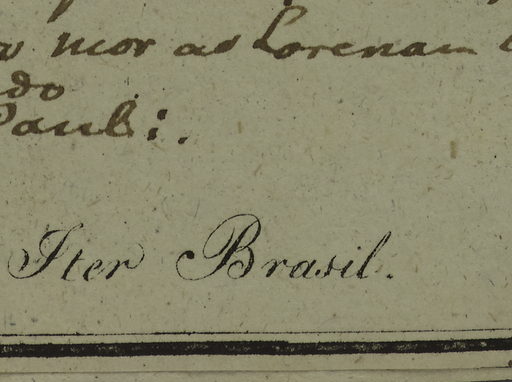 mor ad Lorenam
do
Pauli.
Iter Brasil.